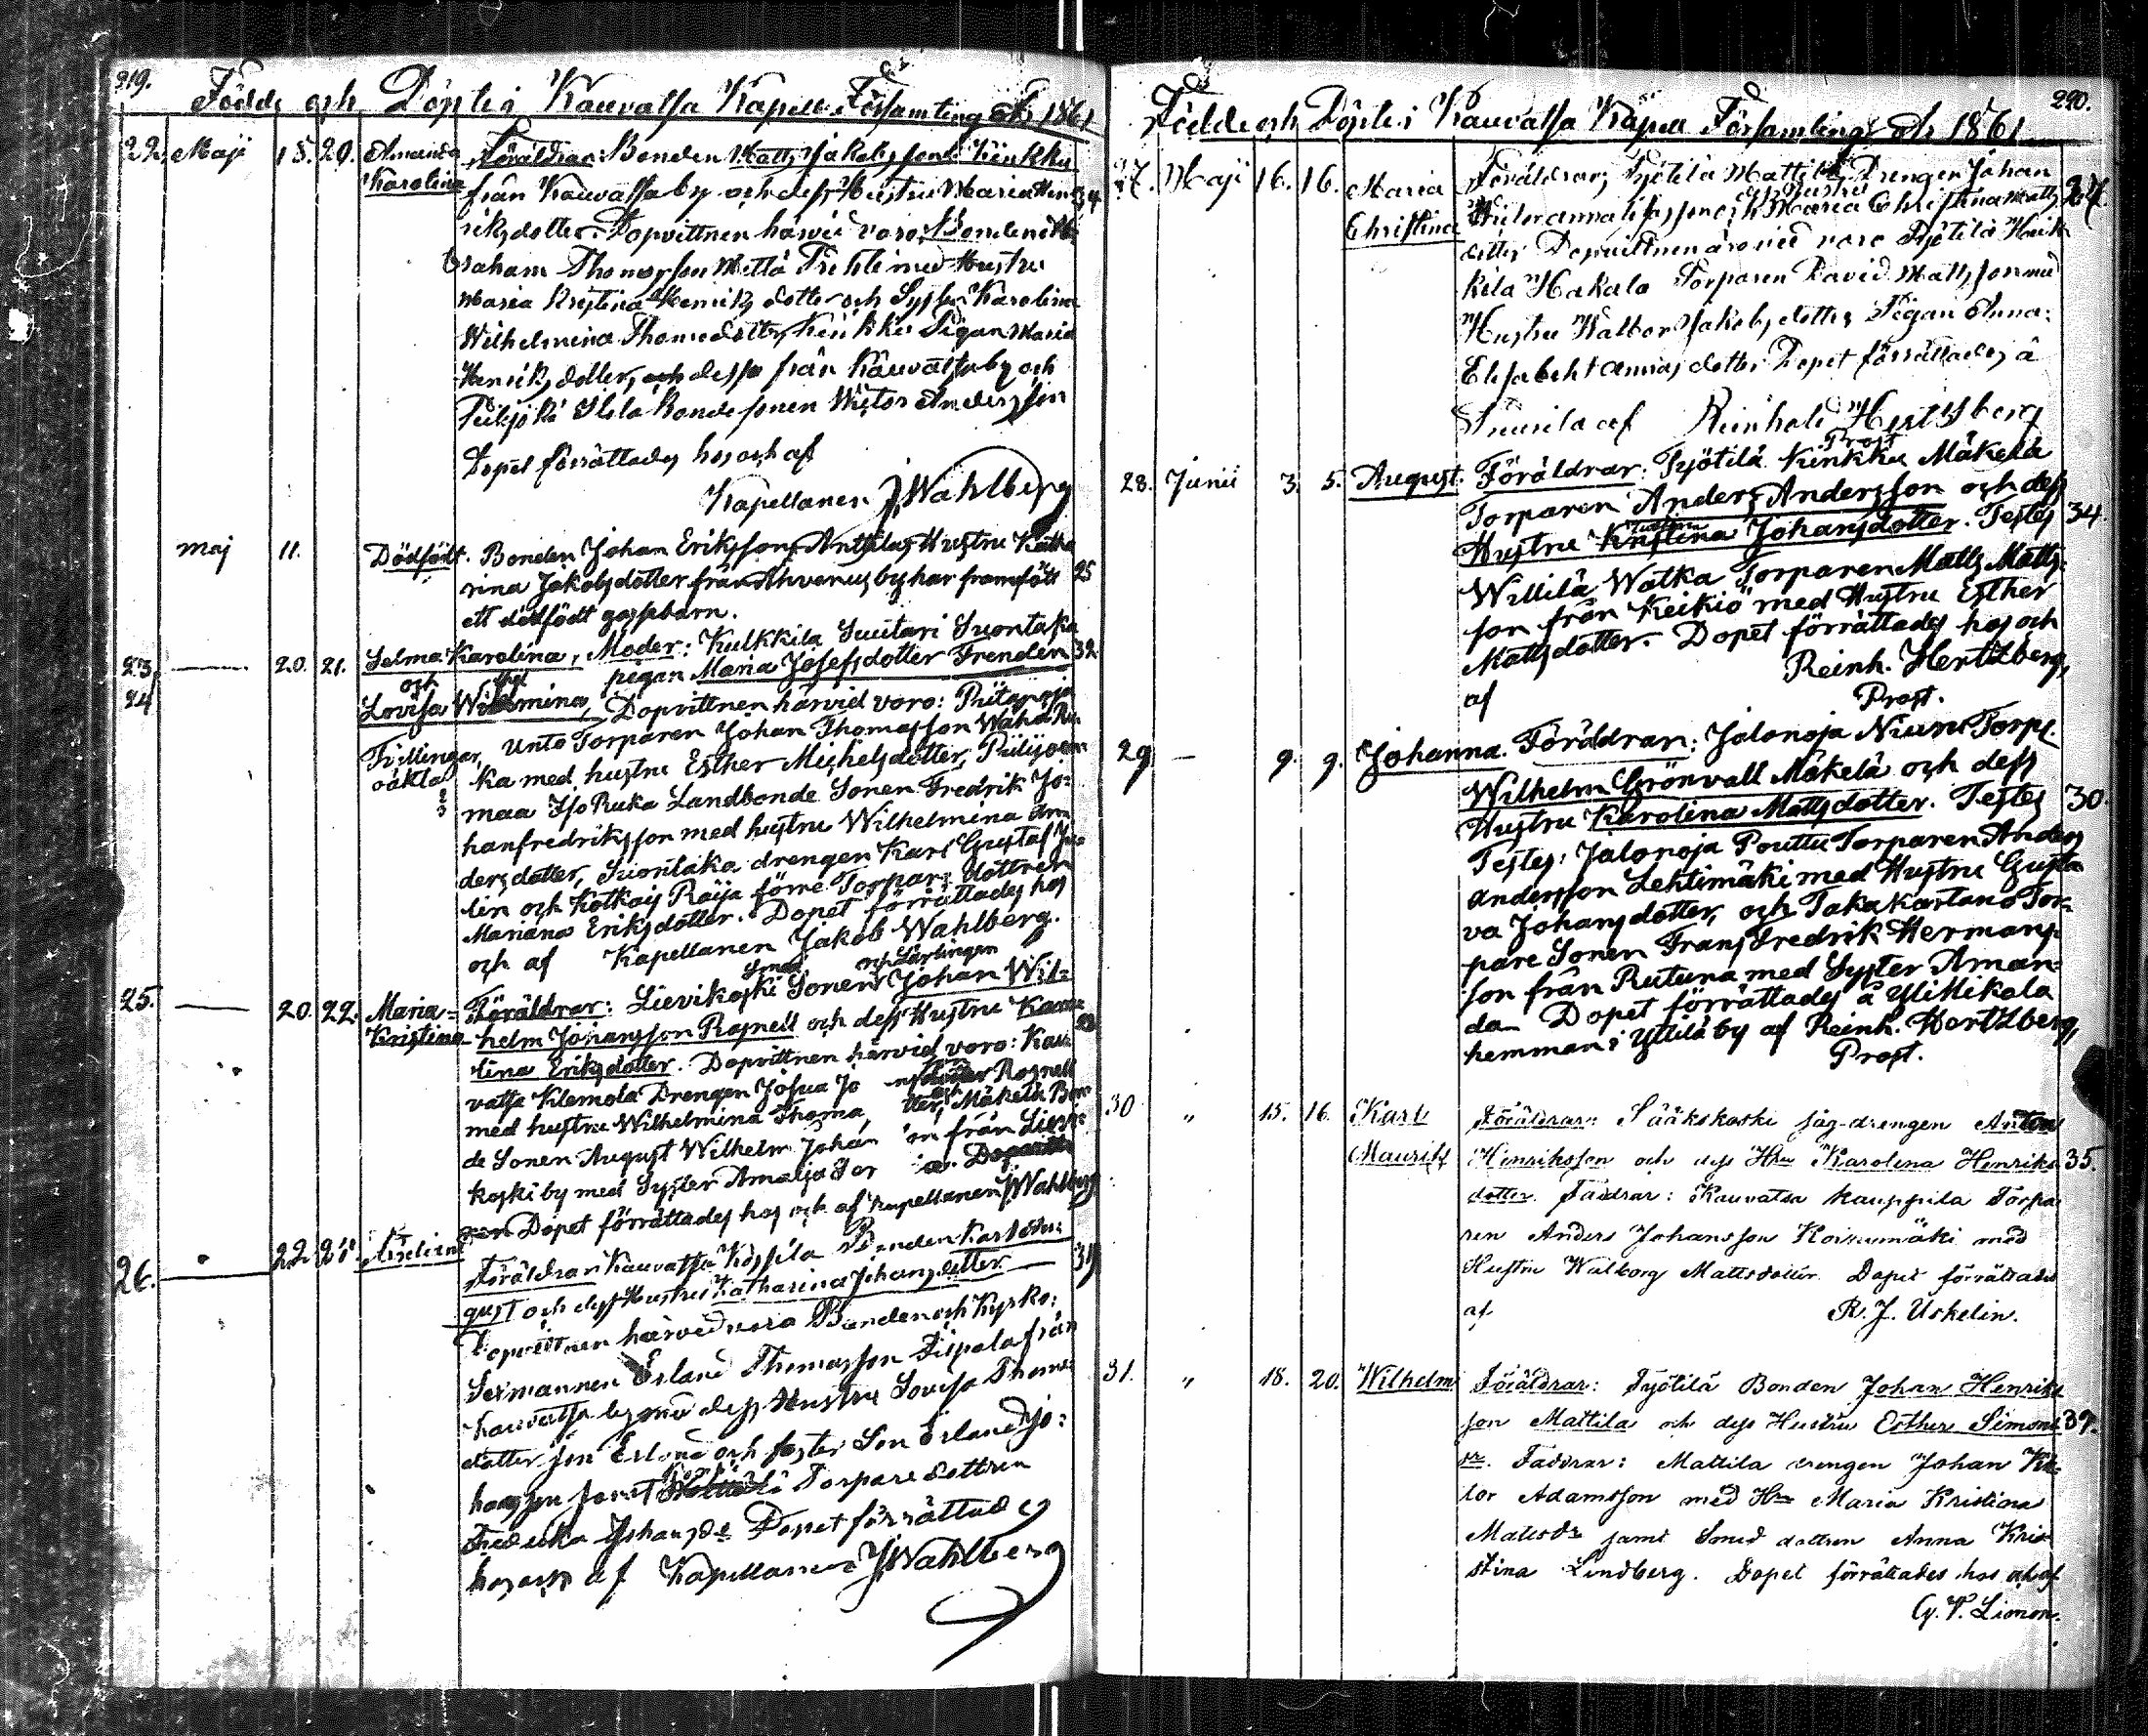 219.
Födde och Döpte i Kauvatsa Kapell Församling År 1861
22. Maji 15. 20. Amanda Föräldrar: Bonden Matts Jakobsson Kinkku
Karolina från Kauvatsa by och dess Hustru Maria Hen 34
riksdotter. Dopvittnen härvid voro: Bonden Ab
raham Thomasson med Hustru
Maria Kristina Henriksdotter och Syster Karolina
Wilhelmina Thomsdotter, Kinkku Pigan Maria
Henriksdotter, och dessa från Kauvatsa by och
Bondesonen Wictor Andersson
Dopet förrättades hos och af
Kapellanen J Wahlberg
maj 11. Dödfödt. Bonden Johan Eriksson Anttilas Hustru Katha
rina Jakobsdotter från Ahvenus by har framfödt 25
ett dödfödt gossebarn.
23. — 20. 21. Selma Karolina, Moder: Kulkkila Suutari Suontaka
och pigan Maria Josefsdotter Frenden 32
24 Lovisa Wilhelmina, Dopvittnen härvid voro: Piitanoja
Tvillingar, Unto Torparen Johan Thomasson Waha Ru
oäkta ka med hustru Esther Michelsdotter, Piilijoen
maa Iso Ruka Landbonde Sonen Fredrik Jo:
hanfredriksson med hustru Wilhelmina An
dersdotter, Suontaka drengen Karl Gustaf Ju
lin och Kotkais Raija förre Torpars dottren
Mariana Eriksdotter. Dopet förrättades hos
och af Kapellanen Jakob Wahlberg.
Smed och Lärlingen
25. — 20. 22. Maria= Föräldrar: Lievikoski Sonen Johan Wil=
Kristina helm Johansson Rosnell och dess Hustru Karo
lina Eriksdotter. Dopvittnen härvid voro: Kau
vatsa Klemola Drengen Josua Jo Rosnell
med hustru Wilhelmina Thoma tter, Mäkelä Bon
de Sonen August Wilhelm Johan on från Lievi
koski by med Syster Amalja
Dopet förrättades hos och af Kapellanen J Wahlberg
26. — 22 28. Föräldrar Kauvatsa Köppilä Bonden Karl Au: 31
gust och dess Hustru Katharina Johansdotter
Dopvittnen härved vora Bonden och Kyrko:
Sexmannen Erland Thomasson Piispala från
Kauvatsa by med dess Hustru Lovisa Thoma
dotter son Erland och foster Son Erland Jo:
hansson samt Torpare dottren
Fredrika Johansdr Dopet förrättades
hos och af Kapellanen J Wahlberg
220.
Födde och Döpte i Kauvatsa Kapell Församling År 1861
27. Maji 16. 16. Maria Föräldrar; Pyötilä Mattila Drengen Johan
Christina och Hustru Maria Christina Matts 27.
dotter Dopvittnen ärvid voro Pyötilä Heik
kila Hakala Torparen David Mattsson med
Hustru Walbor Jakobsdotter, Pigan Anna:
Elisabeht Anniasdotter, Dopet förrättades å
af Reinhold Hertzberg
Prost
28. Junii 3. 5. August. Föräldrar: Pyötilä Kinkku Mäkelä
Torparen Anders Andersson och dess
Hustru Kristina Johansdotter. Testes 34.
Willilä Watka Torparen Matts Matts=
son från Keikiö med Hustru Esther
Mattsdotter. Dopet förrättades hos och
af Reinh. Hertzberg,
Prost.
29 — 9. 9. Johanna. Föräldrar: Jalonoja Niuni Torp.
Wilhelm Grönvall Mäkelä och dess
Hustru Karolina Mattsdotter. Testes 30.
Testes: Jalonoja Pouttu Torparen Anders
Andersson Lehtimäki med Hustru Gusta
va Johansdotter, och Takakartano Tor=
pare Sonen Frans Fredrik Hermans=
son från Rutuna med Syster Aman=
da. Dopet förrättades å Yli Mikola
hemman i Yttilä by af Reinh. Hertzberg,
Prost.
30 „ 15. 16. Karl Föräldrar: Sääkskoski såg-drengen Anton
Maurits Henriksson och dess Hru Karolina Henriks 35.
dotter. Faddrar: Kauvatsa Kauppila Torpa
ren Anders Johansson Koivumäki med
Hustru Walborg Mattsdotter. Dopet förrättades
af R. J. Uskelin.
31. „ 18. 20. Wilhelm Föräldrar: Pyötilä Bonden Johan Henriks
son Mattila och dess Hustru Esther Simons 39.
dr. Faddrar: Mattila drengen Johan Vik
tor Adamsson med Hru Maria Kristina
Mattsdr samt Smed dottren Anna Kris
tina Lindberg. Dopet förrättades hos och af
G. V. Limon.